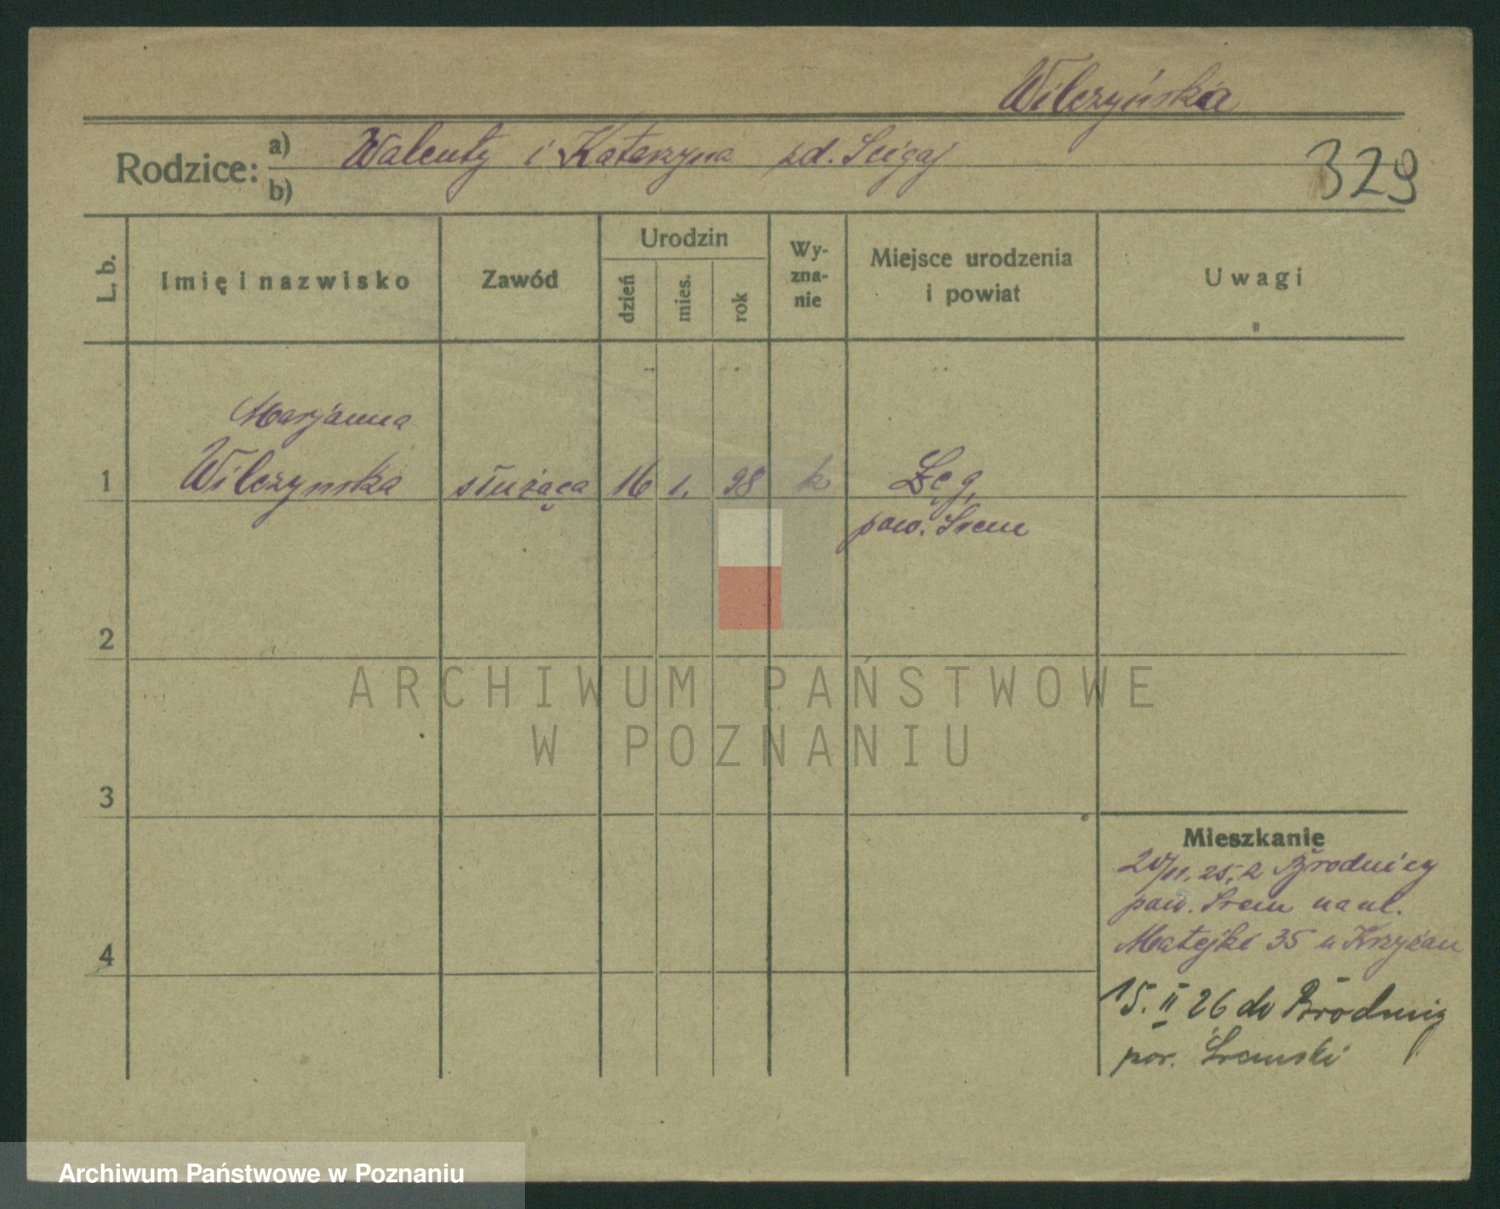 Wilczyńska
Rodzice: a) Walenty i Katarzyna zd. Scigaj
b)
329
L. b.
Imię i nazwisko
Zawód
Urodzin
dzień
mies.
rok
Wy-
zna-
nie
Miejsce urodzenia
i powiat
Uwagi
Marjanna
1 Wilczynska służąca 16 1. 98 k Łęg,
pow. Srem
2
3
4
ARCHIWUM PAŃSTWOWE
W POZNANIU
Mieszkanie
11. 25. z Brodnicy
pow. Srem na ul.
Matejki 35 u Krzyżan
15. II 26 do Brodnicy
pow. Śremski
Archiwum Państwowe w Poznaniu